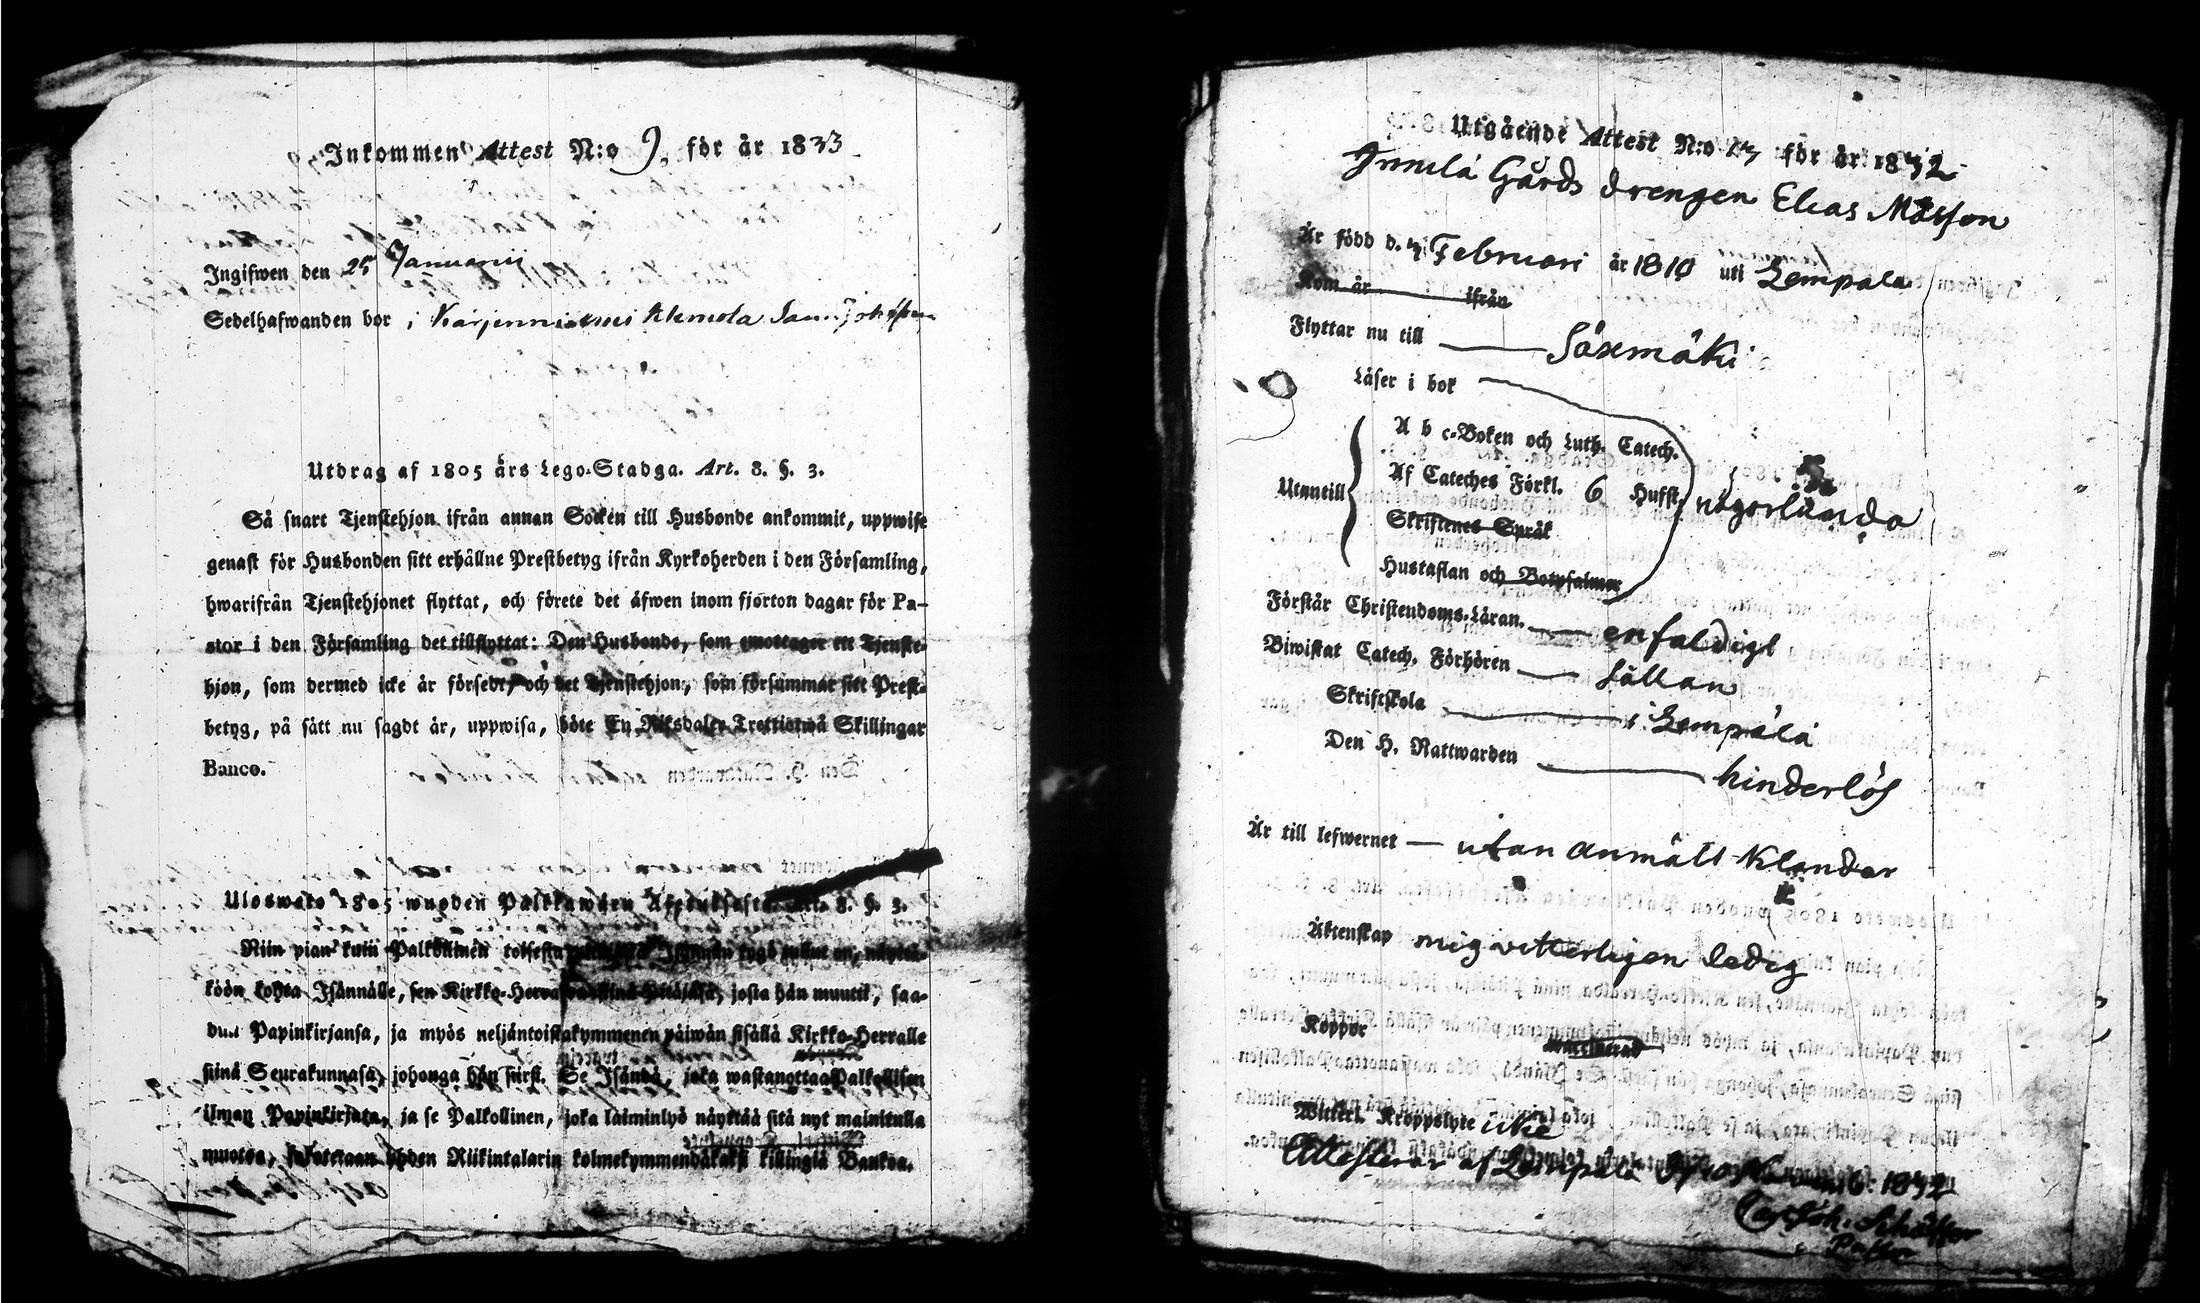 Inkommen Attest N:o 9, för år 1833
Ingifwen den 25 Januarii
Sedelhafwanden bor i
Utdrag af 1805 års Lego-Stadga. Art. 8. §. 3.
Så snart Tjenstehjon ifrån annan Socken till Husbonde ankommit, uppwise
genast för Husbonden sitt erhållne Prestbetyg ifrån Kyrkoherden i den Församling,
hwarifrån Tjenstehjonet flyttat, och förete det äfwen inom fjorton dagar för Pa-
stor i den Församling det tillflyttat: Den Husbonde, som emottager ett Tjenste-
hjon, som dermed icke är försedt, och det Tjenstehjon, som försummar sitt Prest-
betyg, på sätt nu sagdt är, uppwisa, böte En Riksdaler Trettiotwå Skillingar
Banco.
Ulosweto 1805 wuoden Palkkawäen 8. §. 3.
Niin pian kuin Palkollinen toisesta on,
köön kohta Isännälle, sen Kirkko-Herra josta hän muutti, saa-
dun Papinkirjansa, ja myös neljäntoistakymmenen päiwän sisällä Kirkko-Herralle
siinä Seurakunnasa, johonga hän siirsi. Se Isändä, joka wastanottaa Palkollisen
ilman Papinkirjata, ja se Palkollinen, joka laiminlyö näyttää sitä nyt mainitulla
muotoa, yhden Riikintalarin kolmekymmendäkaksi killingiä Bankoa.
Utgående Attest N:o för år 1832
Gårds drengen Elias Matsson
Är född d. Februari år 1810 uti Lempälä
Kom år ifrån
Flyttar nu till Säxmäki
Läser i bok
A b c-Boken och Luth. Catech.
Af Cateches Förkl. 6 Hufst. någorlunda
Utantill
Skriftenes Språk
Hustaflan och Botpsalmer
Förstår Christendoms-Läran. enfaldigt
Biwistat Catech. Förhören sällan
Skriftskola i Lempälä
Den H. Nattwarden hinderlös
Är till lefwernet utan anmält klander
Äktenskap mig vitterligen ledig
Koppor
Witterl. Kroppslyte icke
Attesterar af Lempälä 1832
Carl Joh. Schäffer
Pastor